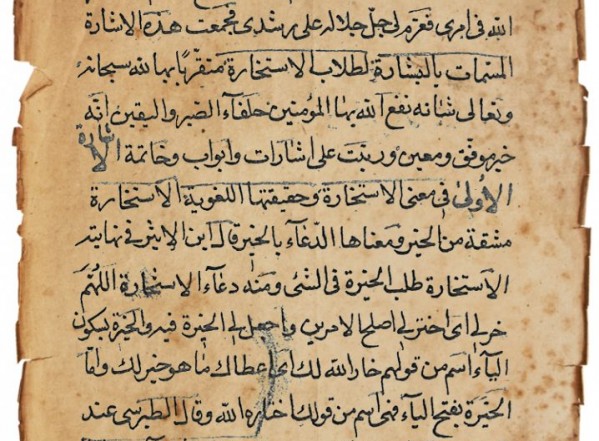 الله فى امرى فعزم لى جل جلاله على رشدى فجمعت هذه الاشارة
المسمات بالبشارة لطلاب الاستخارة متقربا بها لله سبحانه
وتعالى شانه نفع الله بها المؤمنين حلفاء الصبر واليقين انه
خير موفق ومعين ورتبت على اشارات وابواب وخاتمة الاشارة
الاولى فى معنى الاستخارة وحقيقتها اللغوية الاستخارة
مشتقة من الخير ومعناها الدعاء بالخيرة قال ابن الاثير فى نهايته
الاستخارة طلب الخيرة فى الشئ ومنه دعاء الاستخارة اللهم
خر لى اى اختر لى اصلح الامرين واجعل لى الخيرة فيه والخيرة بسكون
الياء اسم من قولهم خار الله لك اى اعطاك ما هو خير لك واما
الخيرة بفتح الياء فهى اسم من قولك اختاره الله وقال الطبرسى عند